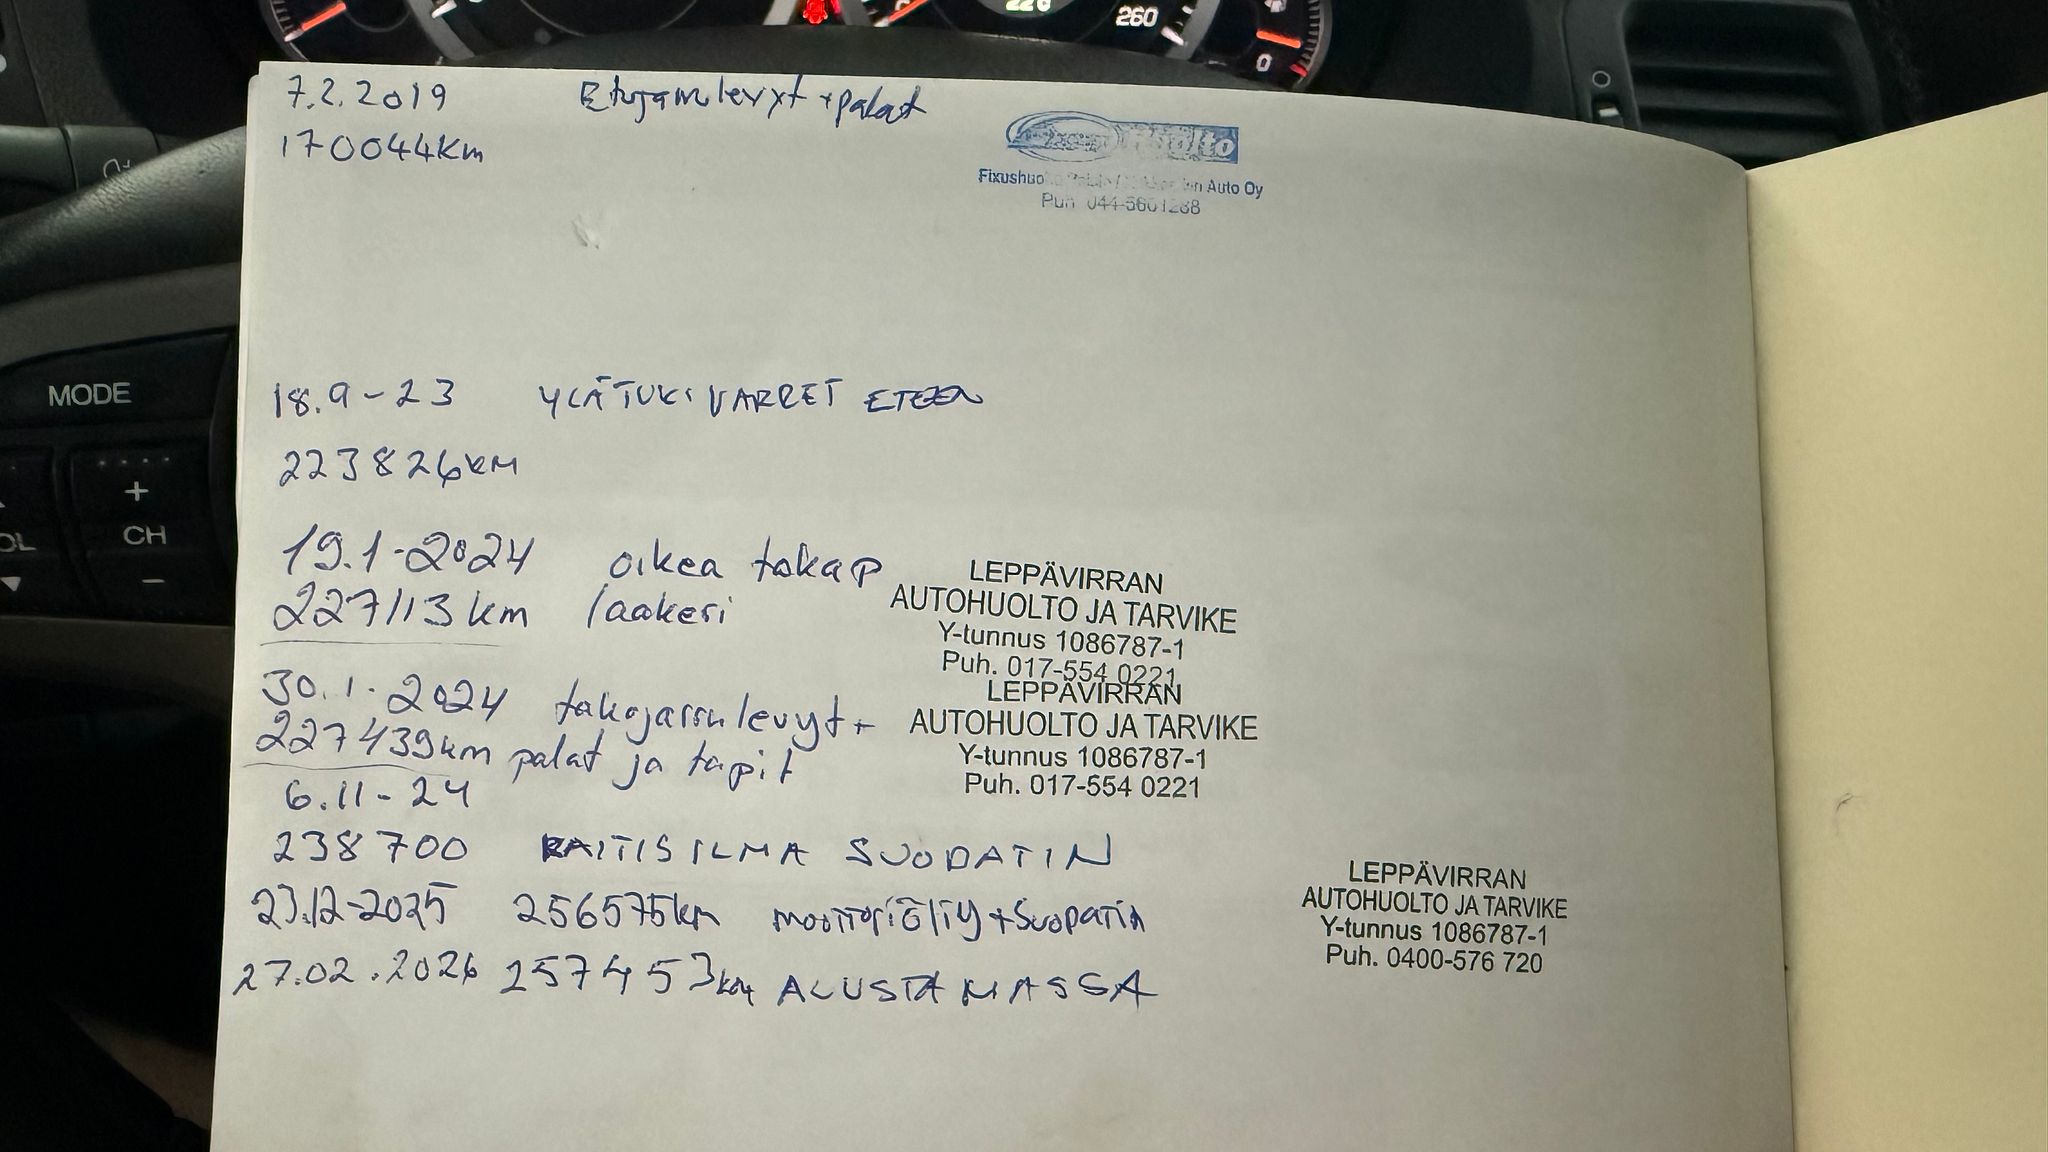 260
0
7.2.2019 Etujarrulevyt + palat
170044km
Huolto
Auto Oy
Puh 044-5601288
MODE
18.9-23 YLÄTUKIVARRET ETEEN
223826KM
+
CH
-
19.1-2024 oikea takap
227113km laakeri
LEPPÄVIRRAN
AUTOHUOLTO JA TARVIKE
Y-tunnus 1086787-1
Puh. 017-554 0221
30.1.2024 takajarrulevyt +
227439km palat ja tapit
LEPPÄVIRRAN
AUTOHUOLTO JA TARVIKE
Y-tunnus 1086787-1
Puh. 017-554 0221
6.11-24
238700 RAITISILMA SUODATIN
23.12-2025 256575km moottoriöljy + Suodatin
27.02.2026 257453km ALUSTAMASSA
LEPPÄVIRRAN
AUTOHUOLTO JA TARVIKE
Y-tunnus 1086787-1
Puh. 0400-576 720